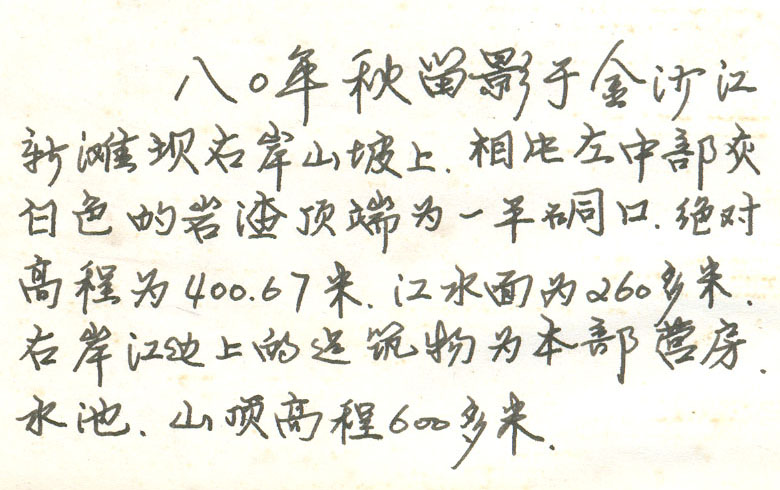 八〇年秋留影于金沙江
新滩坝右岸山坡上.相片左中部灰
白色的岩渣顶端为一平硐口.绝对
高程为400.67米.江水面为260多米.
右岸江边上的建筑物为本部营房.
水池.山顶高程600多米.